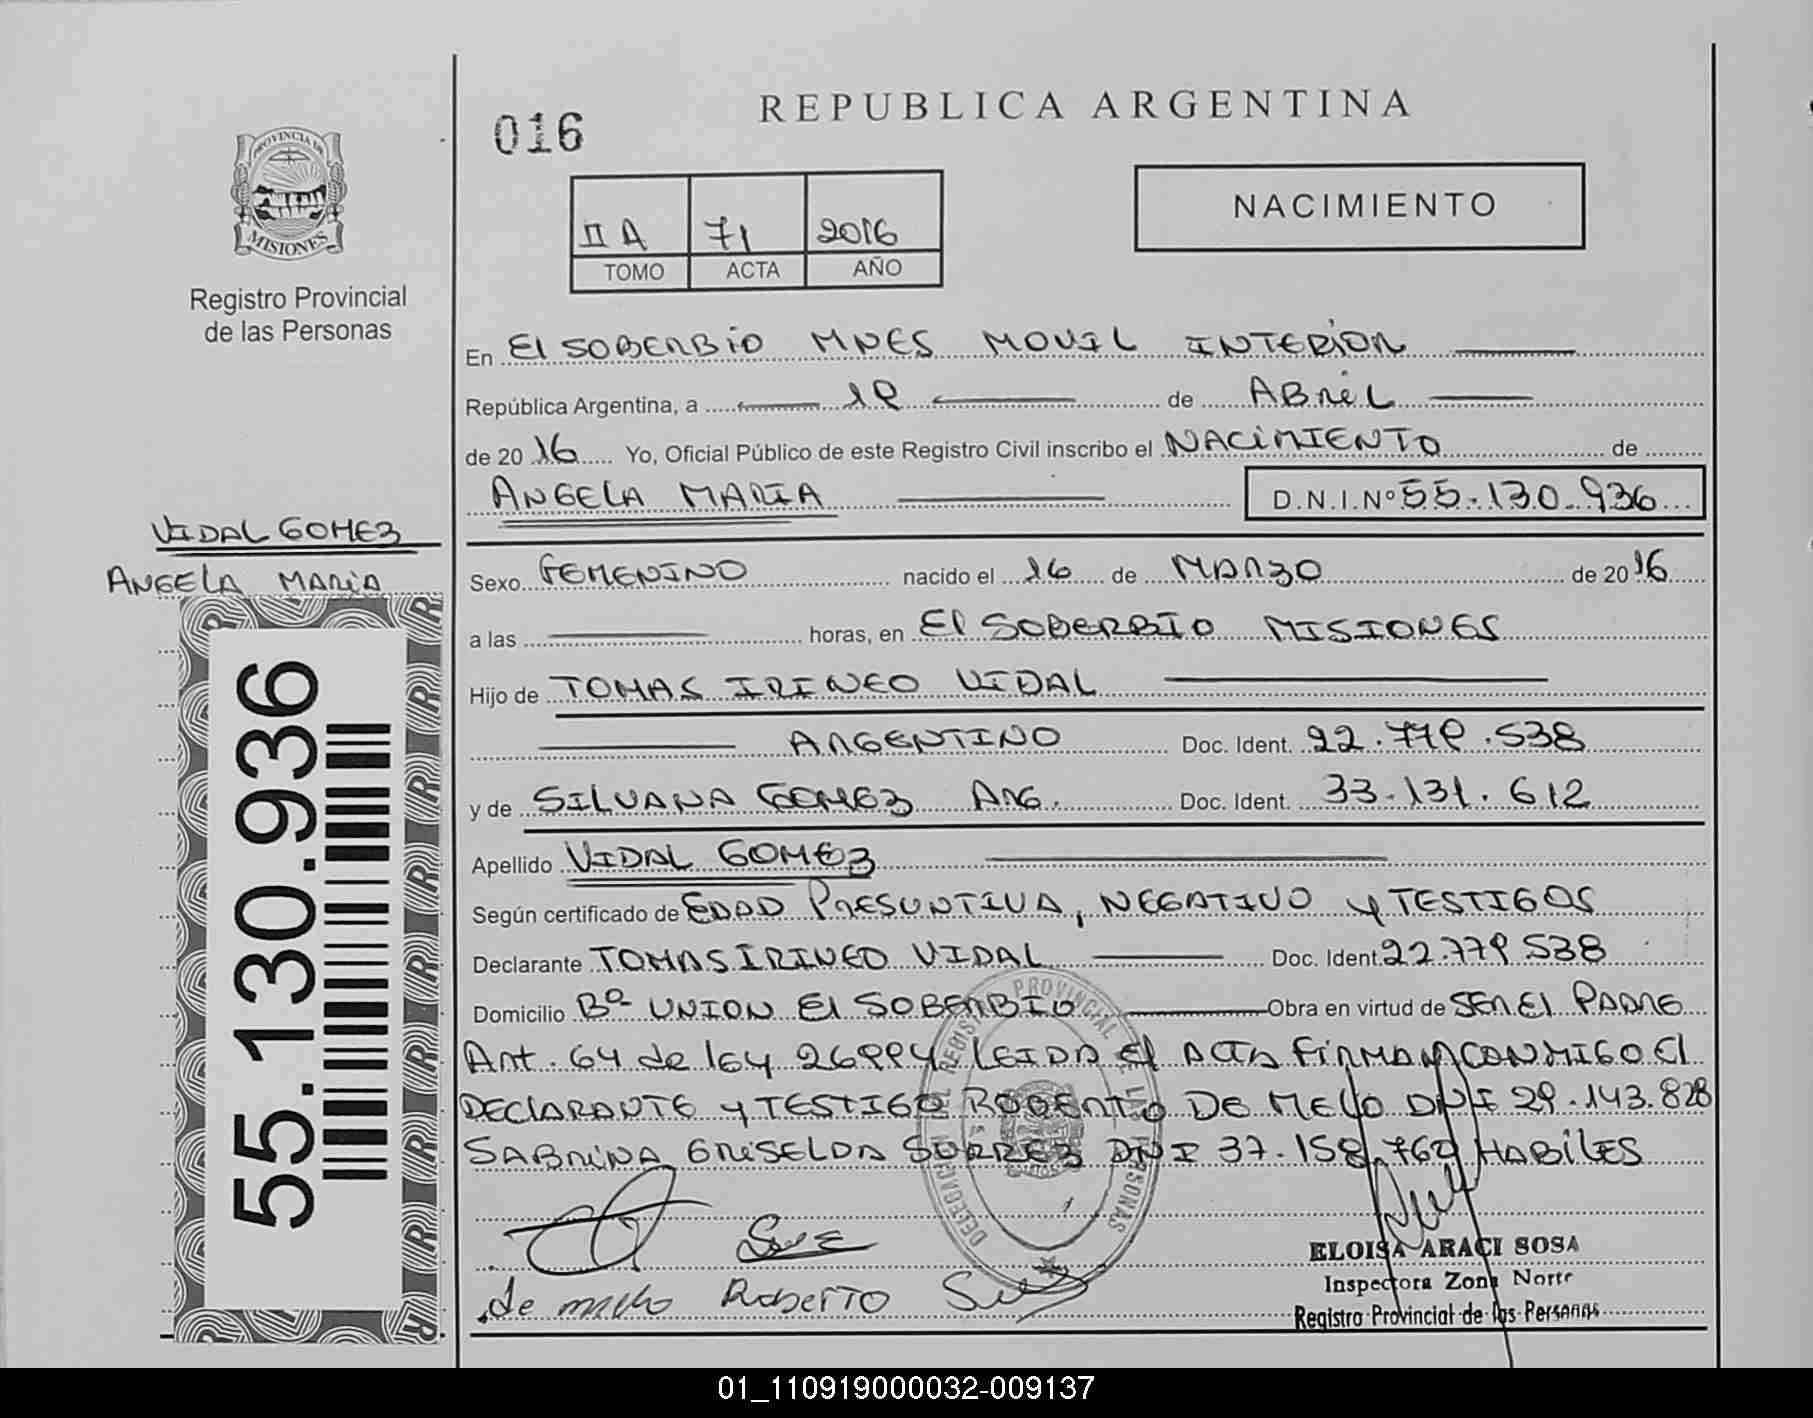 016
REPUBLICA ARGENTINA
NACIMIENTO
II A 71 2016
TOMO ACTA AÑO
PROVINCIA DE
MISIONES
Registro Provincial
de las Personas
En El SOBERBIO MNES MOVIL INTERIOR
República Argentina, a 19 de ABRIL
de 2016 Yo, Oficial Público de este Registro Civil inscribo el NACIMIENTO de
ANGELA MARIA D.N.I.Nº 55.130.936
VIDAL GOMEZ
ANGELA MARIA
55.130.936
Sexo FEMENINO nacido el 16 de MARZO de 2016
a las horas, en El SOBERBIO MISIONES
Hijo de TOMAS IRINEO VIDAL
ARGENTINO Doc. Ident. 22.779.538
y de SILVANA GOMEZ ARG. Doc. Ident. 33.131.612
Apellido VIDAL GOMEZ
Según certificado de EDAD PRESUNTIVA, NEGATIVO y TESTIGOS
Declarante TOMAS IRINEO VIDAL Doc. Ident. 22.779 538
Domicilio Bº UNION El SOBERBIO Obra en virtud de SER El PADRE
Art. 64 de ley 26994 LEIDA El ACTA FIRMAN CONMIGO El
DECLARANTE y TESTIGO ROBERTO DE MELO DNI 29.143.828
SABRINA GRISELDA SUAREZ DNI 37.158.762 HABILES
DELEGACION DEL REGISTRO PROVINCIAL DE LAS PERSONAS
de mello Roberto
ELOISA ARACI SOSA
Inspectora Zona Norte
Registro Provincial de las Personas
01_110919000032-009137